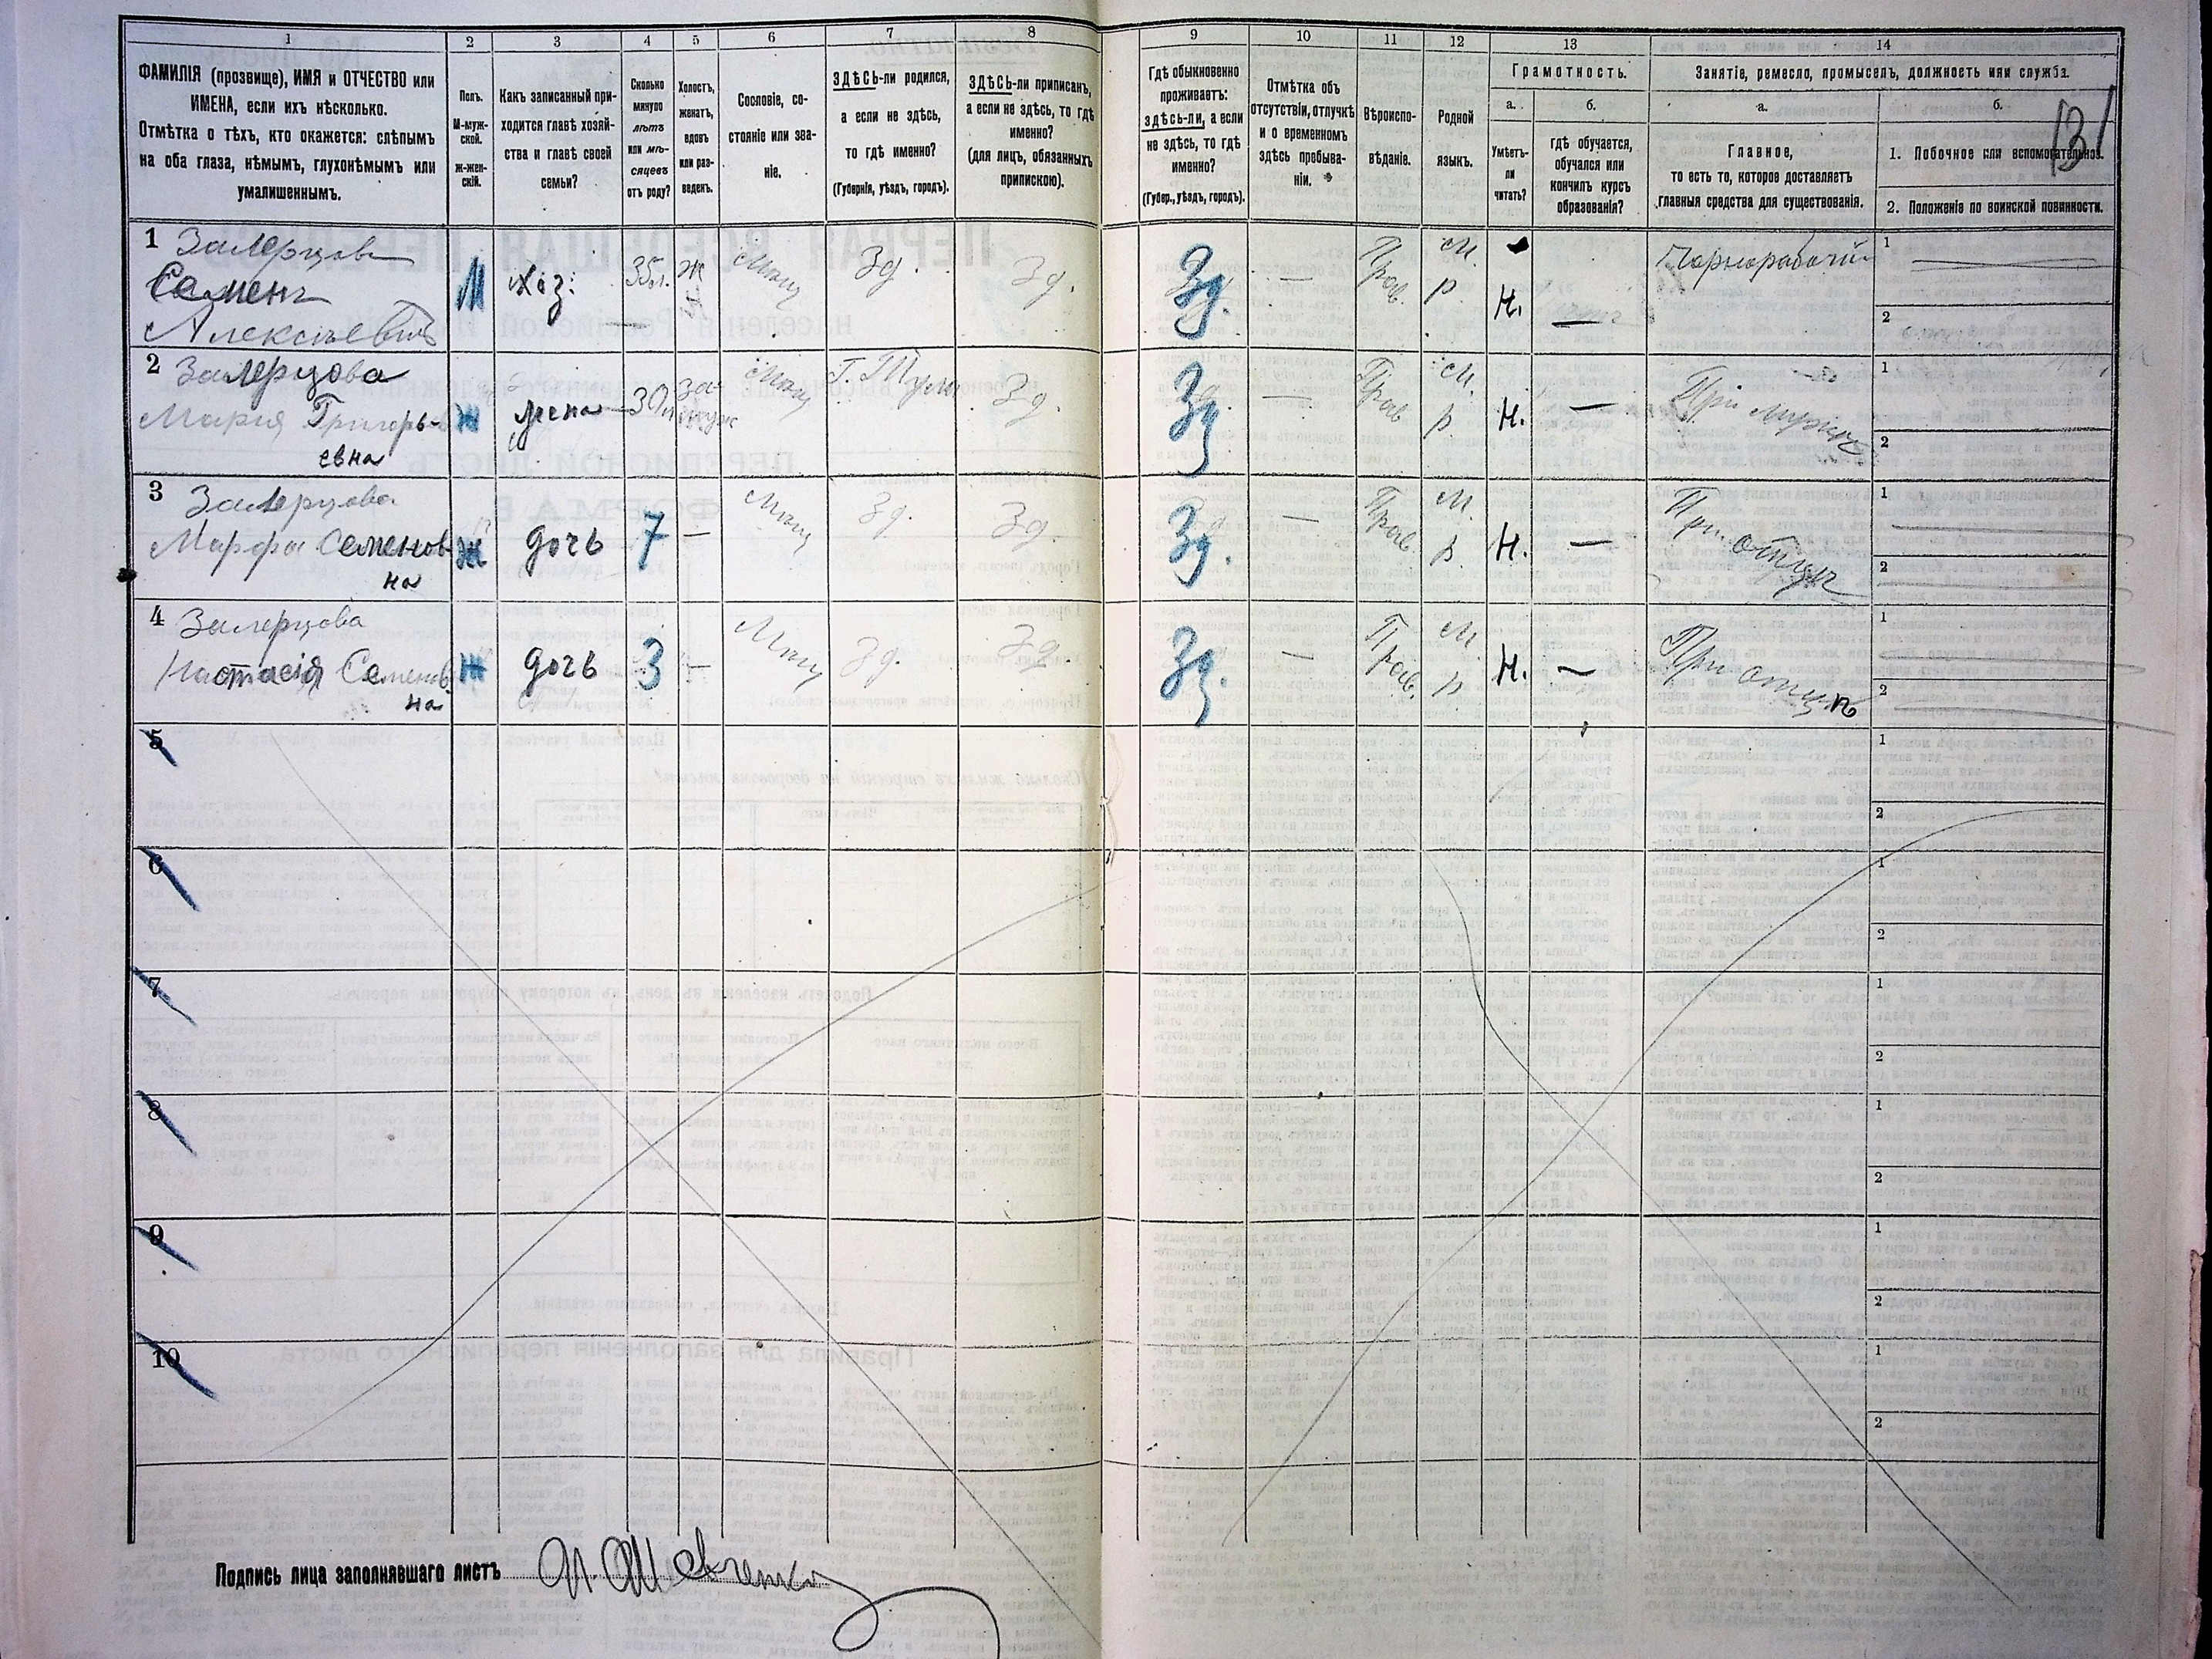 1 2 3 4 5 6 7 8 9 10 11 12 13 14
ФАМИЛІЯ (прозвище), ИМЯ и ОТЧЕСТВО или
ИМЕНА, если ихъ нѣсколько.
Отмѣтка о тѣхъ, кто окажется: слѣпымъ
на оба глаза, нѣмымъ, глухонѣмымъ или
умалишеннымъ.
Полъ.
М-муж-
ской.
Ж-жен-
скій.
Какъ записанный при-
ходится главѣ хозяй-
ства и главѣ своей
семьи?
Сколько
минуло
лѣтъ
или мѣ-
сяцевъ
отъ роду?
Холостъ,
женатъ,
вдовъ
или раз-
веденъ.
Сословіе, со-
стояніе или зва-
ніе.
ЗДѢСЬ-ли родился,
а если не здѣсь,
то гдѣ именно?
(Губернія, уѣздъ, городъ).
ЗДѢСЬ-ли приписанъ,
а если не здѣсь, то гдѣ
именно?
(для лицъ, обязанныхъ
припискою).
Гдѣ обыкновенно
проживаетъ:
здѣсь-ли, а если
не здѣсь, то гдѣ
именно?
(Губер., уѣздъ, городъ).
Отмѣтка объ
отсутствіи, отлучкѣ
и о временномъ
здѣсь пребыва-
ніи.
Вѣроиспо-
вѣданіе.
Родной
языкъ.
Грамотность.
а.
Умѣетъ-
ли
читать?
б.
гдѣ обучается,
обучался или
кончилъ курсъ
образованія?
Занятіе, ремесло, промыселъ, должность или служба.
а.
Главное,
то есть то, которое доставляетъ
главныя средства для существованія.
б.
131
1. Побочное или вспомогательное.
2. Положеніе по воинской повинности.
1
Семенъ
Алексѣевичъ
М Хоз: 35л. Ж Мѣщ Зд. Зд. Зд. — Прав. М. р. Н. — Чернорабочій 1 2
2
Марія Григорь-
евна
Ж жена 30 л За- муж Мѣщ Г. Тула Зд. Зд. — Прав М. р Н. — При 1 2
3
Марфа Семенов-
на
Ж дочь 7 — Мѣщ Зд. Зд. Зд. — Прав. М. р. Н. — При отцѣ 1 2
4
Настасія Семенов
на
Ж дочь 3 — Мѣщ Зд. Зд. Зд. — Прав. М. р Н. — При отцѣ 1 2
5 1 2
6 1 2
7 1 2
8 1 2
9 1 2
10 1 2
Подпись лица заполнявшаго листъ Шевченко